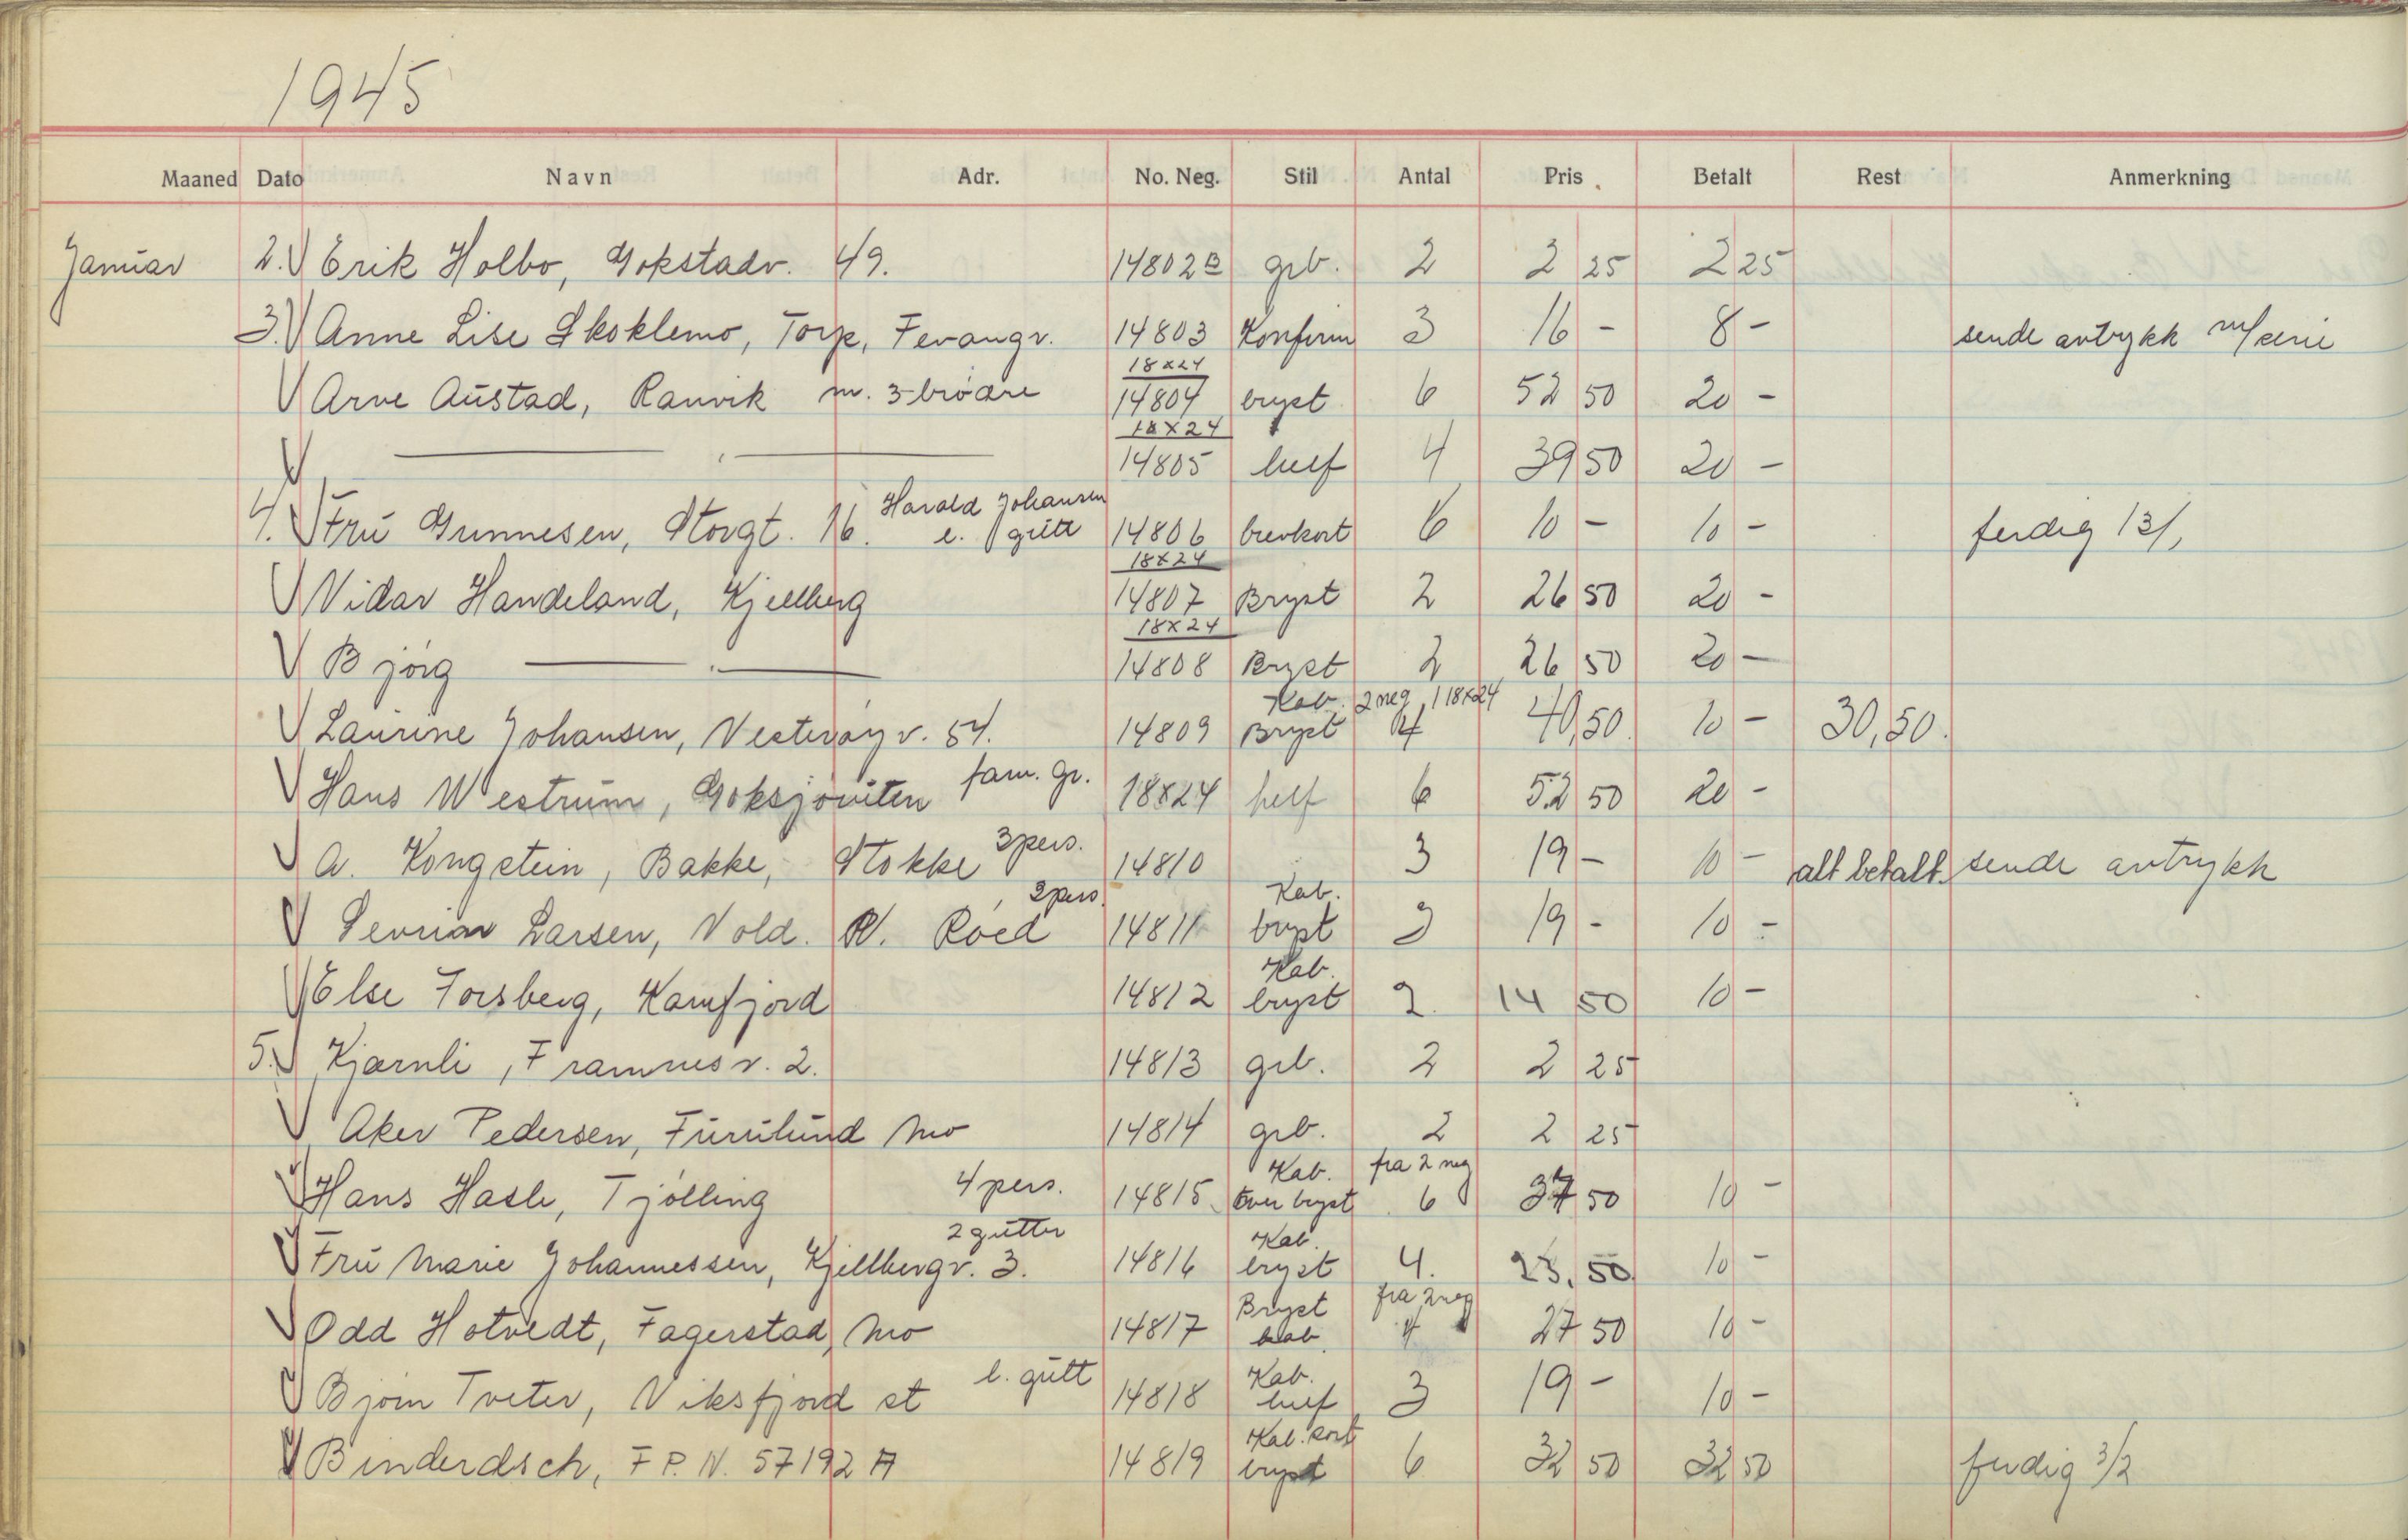 1945
Maaned Dato Navn Adr. No. Neg. Stil Antal Pris Betalt Rest Anmerkning
Januar 2. Erik Holbo, Gokstadv. 49. 14802 B grb. 2 2 25 2 25
3. Anne Lise Skoklemo, Torp, Fevangv. 14803 Konfirm 3 16 - 8 - sende avtrykk
18x24
Arve Austad, Ranvik m. 3 brødre 14804 bryst 6 52 50 20 -
18x24
— " — 14805 helf 4 39 50 20 -
Harald Johansen
4. Fru Gunnesen, Storgt. 16. e. gutt 14806 brevkort 6 10 - 10 - ferdig 13/1
18x24
Vidar Handeland, Kjellberg 14807 Bryst 2 26 50 20 -
18x24
Bjørg — " — 14808 Bryst 2 26 50 20 -
Kab. 2 neg 1 18x24
Laurine Johansen, Vesterøyv. 54. 14809 Bryst 4 40,50 10 - 30,50.
Hans Westrum, Goksjøviten fam. gr. 18x24 helf 6 52 50 20 -
A. Kongstein, Bakke, Stokke 3 pers. 14810 3 19 - 10 - alt betalt. sende avtrykk
2 pers. Kab.
Larsen, Vold. N. Roed 14811 bryst 3 19 - 10 -
Kab.
Else Forsberg, Kamfjord 14812 bryst 2 14 50 10 -
5. Kjærnli, Framnesv. 2. 14813 grb. 2 2 25
Aker Pedersen, Furulund Mo 14814 grb. 2 2 25
Kab. fra 2 neg
Hans Hasle, Tjølling 4 pers. 14815 over bryst 6 37 50 10 -
2 gutter Kab.
Fru Marie Johannessen, Kjellbergv. 3. 14816 bryst 4. 23,50 10 -
Bryst fra 2 neg
Odd Hotvedt, Fagerstad, Mo 14817 kab. 4 27 50 10 -
l. gutt Kab.
Bjørn Tveter, Viksfjord st 14818 helf 3 19 - 10 -
Kab. kort
Binderdsch, F.P.N. 57192 A 14819 bryst 6 32 50 32 50 ferdig 3/2